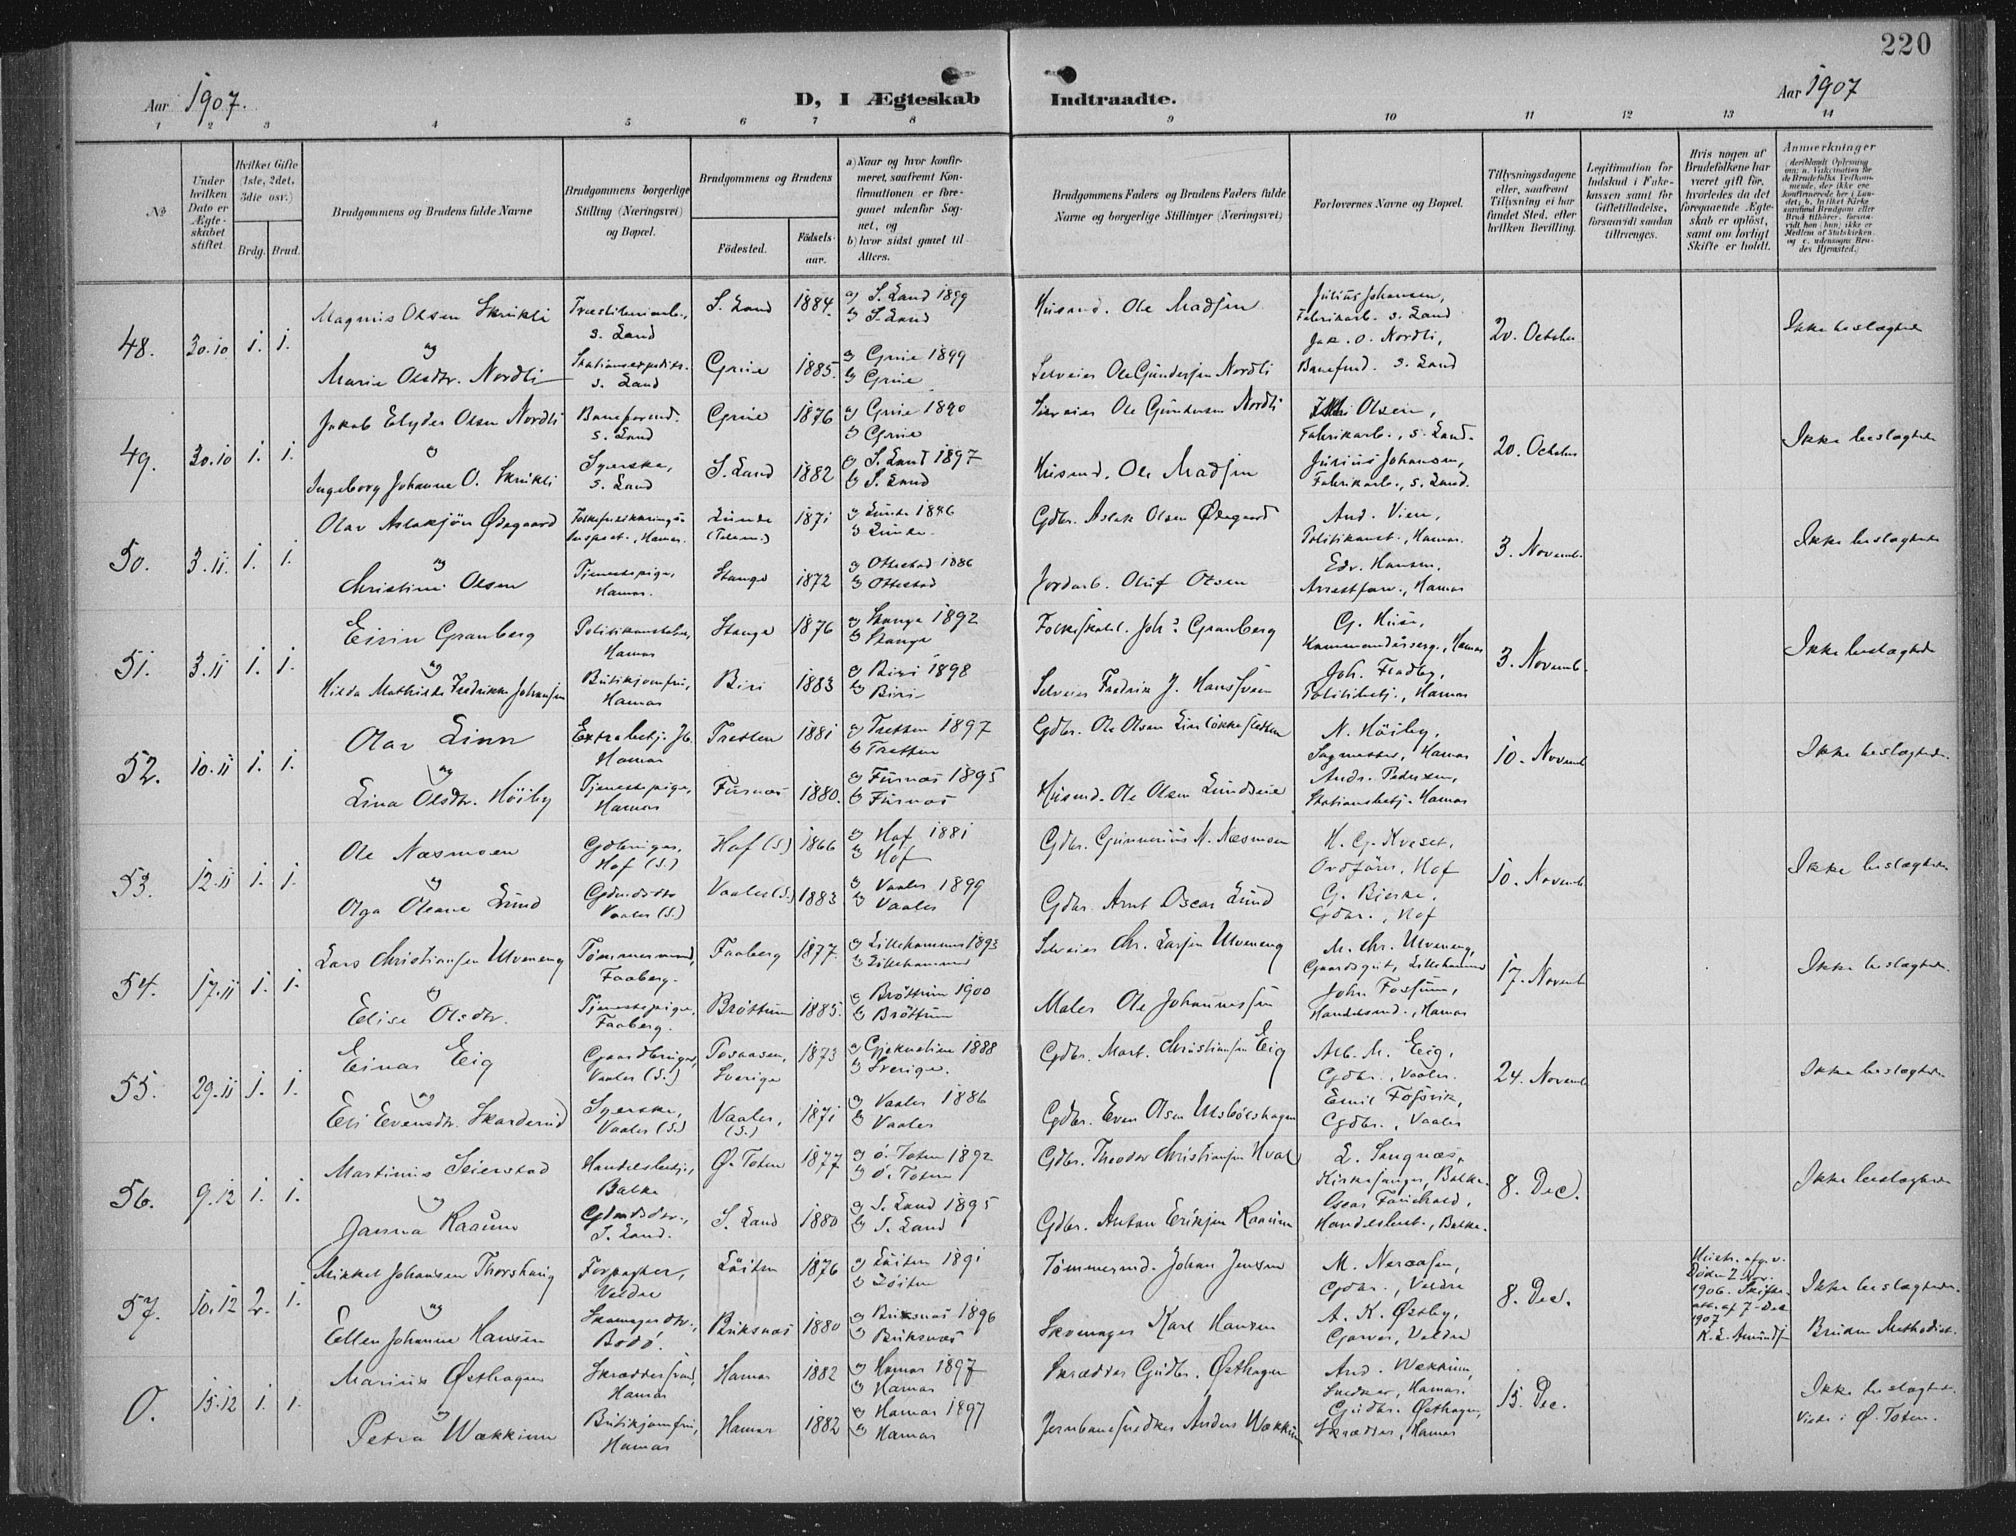 220
Aar 1907.
D, I Ægteskab Indtraadte.
Aar 1907
1 2 3 4 5 6 7 8 9 10 11 12 13 14
No
Under hvilken Dato er Ægteskabet stiftet.
Hvilket Gifte (1ste, 2det, 3die osv.)
Brdg. Brud.
Brudgommens og Brudens fulde Navne
Brudgommens borgerlige Stilling (Næringsvei) og Bopæl.
Brudgommens og Brudens
Fødested.
Fødselsaar.
a) Naar og hvor konfirmeret, saafremt Konfirmationen er foregaaet udenfor Sognet, og
b) hvor sidst gaaet til Alters.
Brudgommens Faders og Brudens Faders fulde Navne og borgerlige Stillinger (Næringsvei)
Forlovernes Navne og Bopæl.
Tillysningsdagene eller, saafremt Tillysning ei har fundet Sted, efter hvilken Bevilling.
Legitimation for Indskud i Enkekassen samt for Giftetilladelse, forsaavidt saadan tiltrænges.
Hvis nogen af Brudefolkene har været gift før, hvorledes da det foregaaende Ægteskab er opløst, samt om lovligt Skifte er holdt.
Anmerkninger
48. 30.10 1. 1.
Magnus Olsen Skrukli
S. Land
S. Land 1884.
a) S. Land 1899
b) S. Land
Husmd. Ole Madsen
Julius Johansen,
Fabrikarb. S. Land
20. October
Ikke beslægtede
og
Marie Olsdtr. Nordli
S. Land
Grue 1885.
a) Grue 1899
b) Grue
Selveier Ole Gundersen Nordli
Jak. O. Nordli,
Baneformd. S. Land
49. 30.10 1. 1.
Jakob Elyder Olsen Nordli
Baneformd.
S. Land
Grue 1876
a) Grue 1890
b) Grue
Selveier Ole Gundersen Nordli
Olsen,
Fabrikarb., S. Land.
20. October
Ikke beslægtede
og
Ingeborg Johanne O. Skrukli
Syerske,
S. Land
S. Land 1882
a) S. Land 1897
b) S. Land
Husmd. Ole Madsen
Julius Johansen,
Fabrikarb., S. Land.
50. 3.11. 1. 1.
Olav Aslaksjön Ødegaard
Hamar.
Lunde
(Telem.) 1871
a) Lunde 1886
b) Lunde.
Gdbr. Aslak Olsen Ødegaard
And. Vien,
Politikonst., Hamar.
3. Novemb.
Ikke beslægtede
og
Christine Olsen
Tjenestepige,
Hamar.
Stange 1872
a) Ottestad 1886
b) Ottestad
Jordarb. Oluf Olsen
Edv. Hansen,
Arrestforv., Hamar
51. 3.11 1. 1.
Eivin Granberg
Politikonstabel,
Hamar
Stange 1876
a) Stange 1892
b) Stange
Joh.s Granberg
G. Huse,
Hamar
3. Novemb.
Ikke beslægtede
og
Hilda Mathilde Fredrikke Johansen
Butikjomfru,
Hamar
Biri 1883
a) Biri 1898
b) Biri
Selveier Fredrik J. Hanssveen
Joh. Fladby,
Politibetj., Hamar
52. 10.11 1. 1.
Olav Linn
Extrabetj. Jb.
Hamar
Tretten 1881
a) Tretten 1897
b) Tretten
Gdbr. Ole Olsen
N. Höiby,
Sagmester, Hamar
10. Novemb
Ikke beslægtede.
og
Lina Olsdtr. Höiby
Tjenestepige,
Hamar
Furnæs 1880.
a) Furnæs 1895
b) Furnæs
Husmd. Ole Olsen
Andr. Pedersen,
Stationsbetj. Hamar
53. 12.11 1. 1.
Ole Næsmoen
Gdbruger,
Hof (S.)
Hof (S) 1866
a) Hof 1881
b) Hof
Gdbr. Gunnerius N. Næsmoen
H. G. Kveset,
Ordförer, Hof
10. Novemb.
Ikke beslægtede.
og
Olga Oleane Lund
Gdmdsdtr
Vaaler (S.)
Vaaler (S.) 1883
a) Vaaler 1899
b) Vaaler
Gdbr. Arnt Oscar Lund
G. Bjerke,
Gdbr., Hof
54. 17.11 1. 1.
Lars Christiansen Ulveneng
Tømmermand,
Faaberg.
Faaberg 1877.
a) Lillehammer 1893
b) Lillehammer
Selveier Chr. Larsen Ulveneng
M. Chr. Ulveneng,
Gaardsgut, Lillehammer
17. Novemb
Ikke beslægtede.
og
Elise Olsdtr.
Tjenestepige,
Faaberg.
Brøttum 1885.
a) Brøttum 1900
b) Brøttum
Maler Ole Johannessen
John Fossum,
Handelsmd., Hamar
55. 29.11 1. 1.
Einar Eig
Gaardbruger,
Vaaler (S.)
Sverige 1873
1888
b) Sverige.
Gdbr. Mart. Christiansen Eig
Alb. M. Eig,
Gdbr., Vaaler.
24. Novemb
Ikke beslægtede.
og
Eli Evensdtr. Skarderud
Syerske,
Vaaler (S.)
Vaaler,
(S.) 1871
a) Vaaler 1886
b) Vaaler
Gdbr. Even Olsen
Emil
Gdbr., Vaaler
56. 9.12 1. 1.
Martinus Seierstad
Handelsbetj.,
Balke
Ø. Toten 1877
a) Ö. Toten 1892
b) Ö. Toten
Gdbr. Theodor Christiansen Hval
L. Sangnæs,
Kirkesanger, Balke.
8. Dec.
Ikke beslægtede
og
Janna Raaum
Gdmdsdtr.,
S. Land.
S. Land 1880
a) S. Land 1895
b) S. Land
Gdbr. Anton Eriksen Raaum
Oscar
Handelsbest., Balke.
57. 10.12 2. 1.
Mikkel Johansen Thorshaug
Forpagter,
Veldre
Löiten 1876
a) Löiten 1891
b) Löiten
Tömmermd. Johan Jensen
M. Neraasen,
Gdbr., Veldre
8. Dec.
Hustr. afg. v.
Døden 2 Nov.
1906. Skifte-
att. af 7-Dec
1907
Ikke beslægtede.
og
Ellen Johanne Hansen
Skomagerdtr.,
Bodö.
Buksnæs 1880
a) Buksnæs 1896
b) Buksnæs
Skomager Karl Hansen
A. K. Østby,
Garver, Veldre
Bruden Methodist.
0. 15.12 1. 1.
Marius Østhagen
Skræddersvend,
Hamar
Hamar 1882
a) Hamar 1897
b) Hamar
Skrædder Gudbr. Østhagen
And. Wækkum,
Snedker, Hamar.
15. Dec.
Ikke beslægtede.
Viet i Ø. Toten.
og
Petra Wækkum
Butikjomfru,
Hamar
Hamar 1882
a) Hamar 1897
b) Hamar
Jernbanesnedker Anders Wækkum
Gudbr. Østhagen,
Skrædder, Hamar